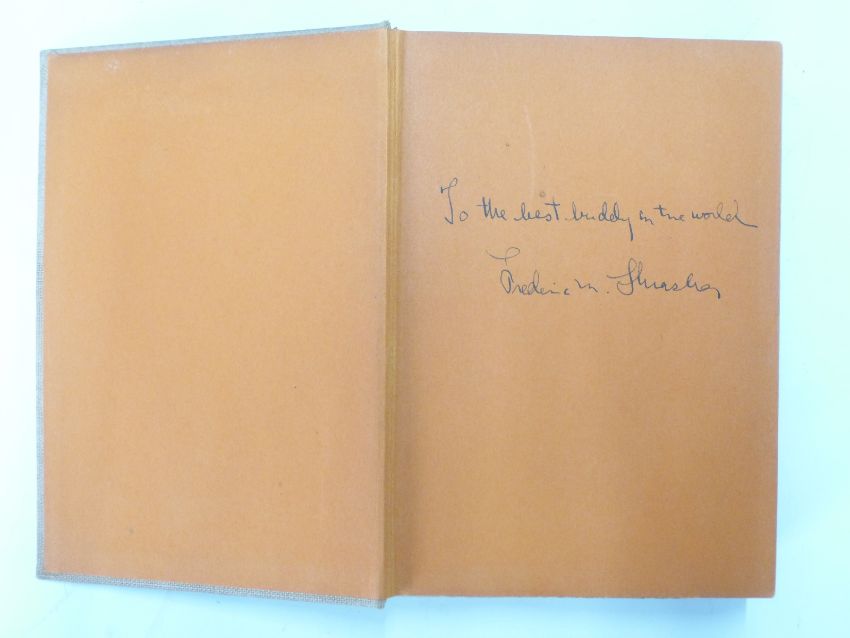 To the best buddy in the world
Frederic M. Thrasher